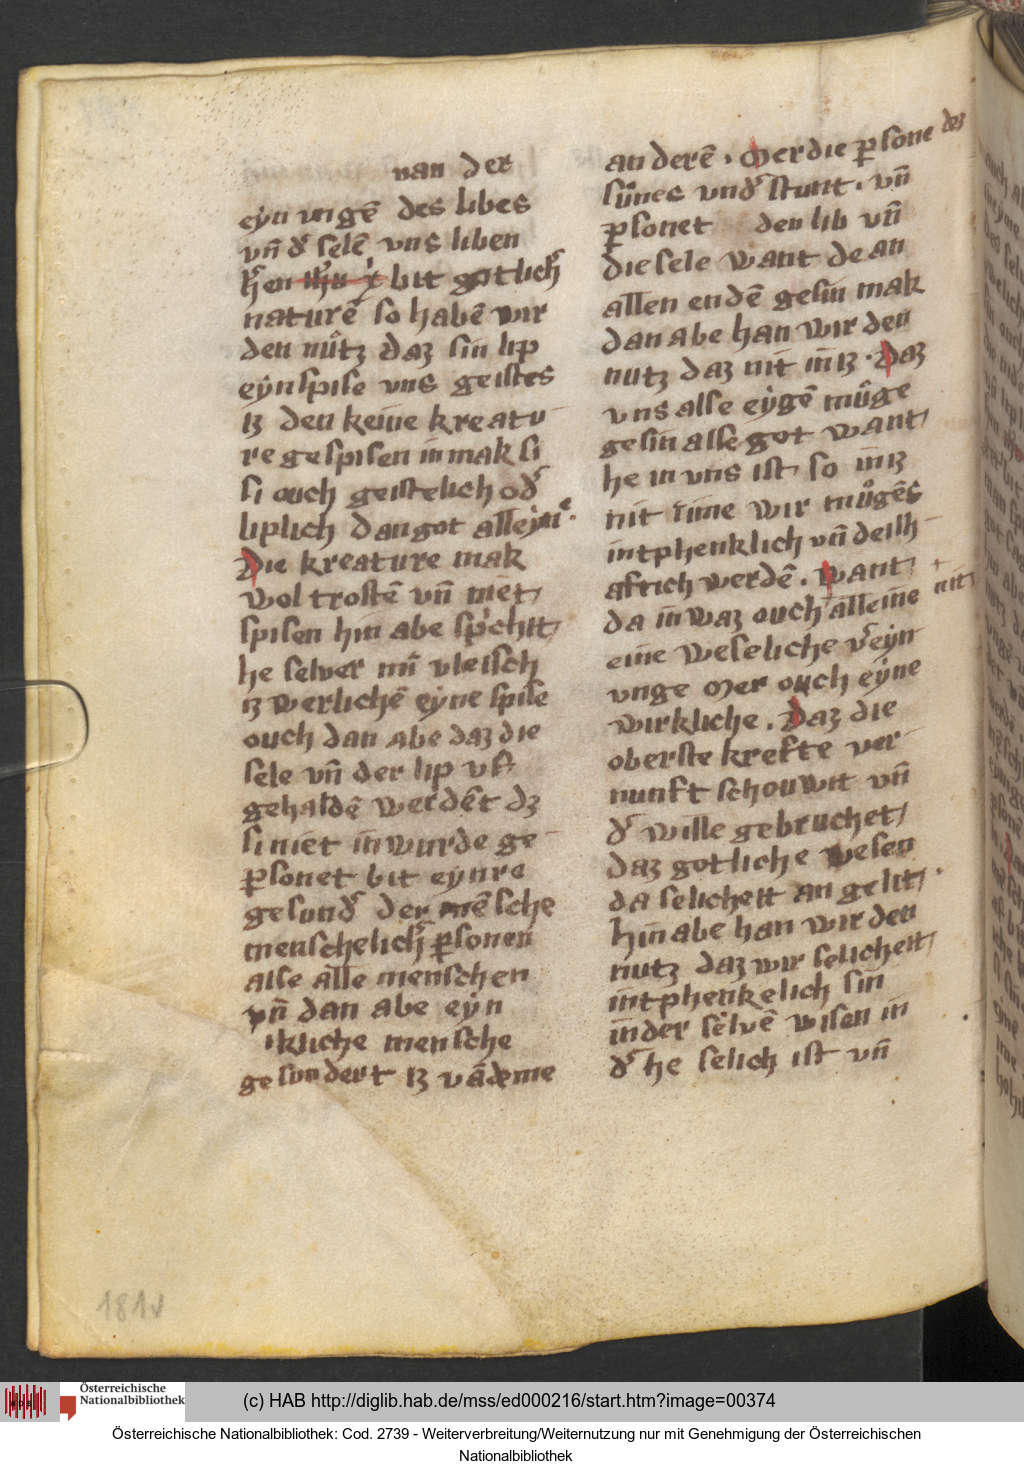 van der
eyn ungē des libes
vn̄ d᷑ selē vns liben
h᷑en ih̄u x᷑ bit gotlich᷑
naturē so habē wir
den nůtz daz sin lip
eyn spise vns geistes
iz den keine kreatu
re gespisen in mak si
si ouch geistelich od᷑
liplich dan got alleyne.
Die kreature mak
wol trostē vn̄ niet
spisen hin abe sp᷑chit
he selver min vleisch
iz werlichē eyne spise
ouch dan abe daz die
sele vn̄ der lip uf
gehaldē werdēt dz
si niet in wurde ge
ꝑsonet bit eynre
gesund᷑ der mēsche
menschelich᷑ ꝑsonen
alse alle menschen
vn̄ dan abe eyn
ikliche mensche
gesondert iz vā deme
anderē . Mer die ꝑsone des
sůnes vnd᷑ stunt . vn̄
ꝑsonet den lib vn̄
die sele want de an
allen endē gesin mak
dan abe han wir den
nutz daz nit in iz . Daz
vns alse eygē můge
gesin alse got want
he in vns ist so in iz
nit ime wir můgēs
intphenklich vn̄ deilh
aftich werdē . want
da in waz ouch alleine nit
eine weseliche v᷑eyn
unge Mer ouch eyne
wirkliche . Daz die
oberste krefte ver
nunft schouwit vn̄
d᷑ wille gebruchet
daz gotliche wesen
da selicheit an gelit .
hin abe han wir den
nutz daz wir selicheit
intphenkelich sin
in der selvē wisen in
d᷑ he selich ist vn̄
181v
(c) HAB http://diglib.hab.de/mss/ed000216/start.htm?image=00374
Österreichische
Nationalbibliothek
Österreichische Nationalbibliothek: Cod. 2739 - Weiterverbreitung/Weiternutzung nur mit Genehmigung der Österreichischen
Nationalbibliothek